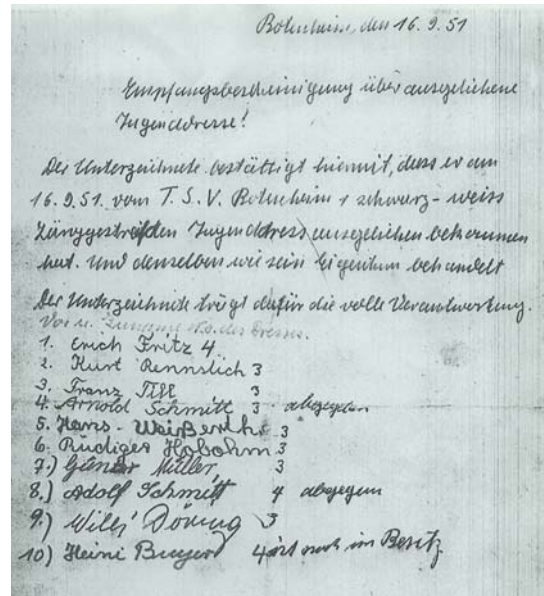 Bolnheim, den 16.9.51
Empfangsbescheinigung über ausgeliehene
Jugenddresse!
Der Unterzeichnete bestättigt hiermit, dass er am
16.9.51. vom T.S.V. 1 schwarz-weiss
Jugenddress ausgeliehen bekommen
hat. Und denselben wie sein Eigentum behandelt
Der Unterzeichnete trägt dafür die volle Verantwortung.
Vor u. Zuname des Dresses.
1. Erich Fritz 4
2. Kurt Rennslich 3
3. Franz Till 3
4. Arnold Schmitt 3 abgegeben
5. Hans- 3
6. Rüdiger Hobohm 3
7.) Günter Müller, 3
8.) Adolf Schmitt 4 abgegeben
9.) Willi Döring 3
10) Heini 4 ist noch im Besitz